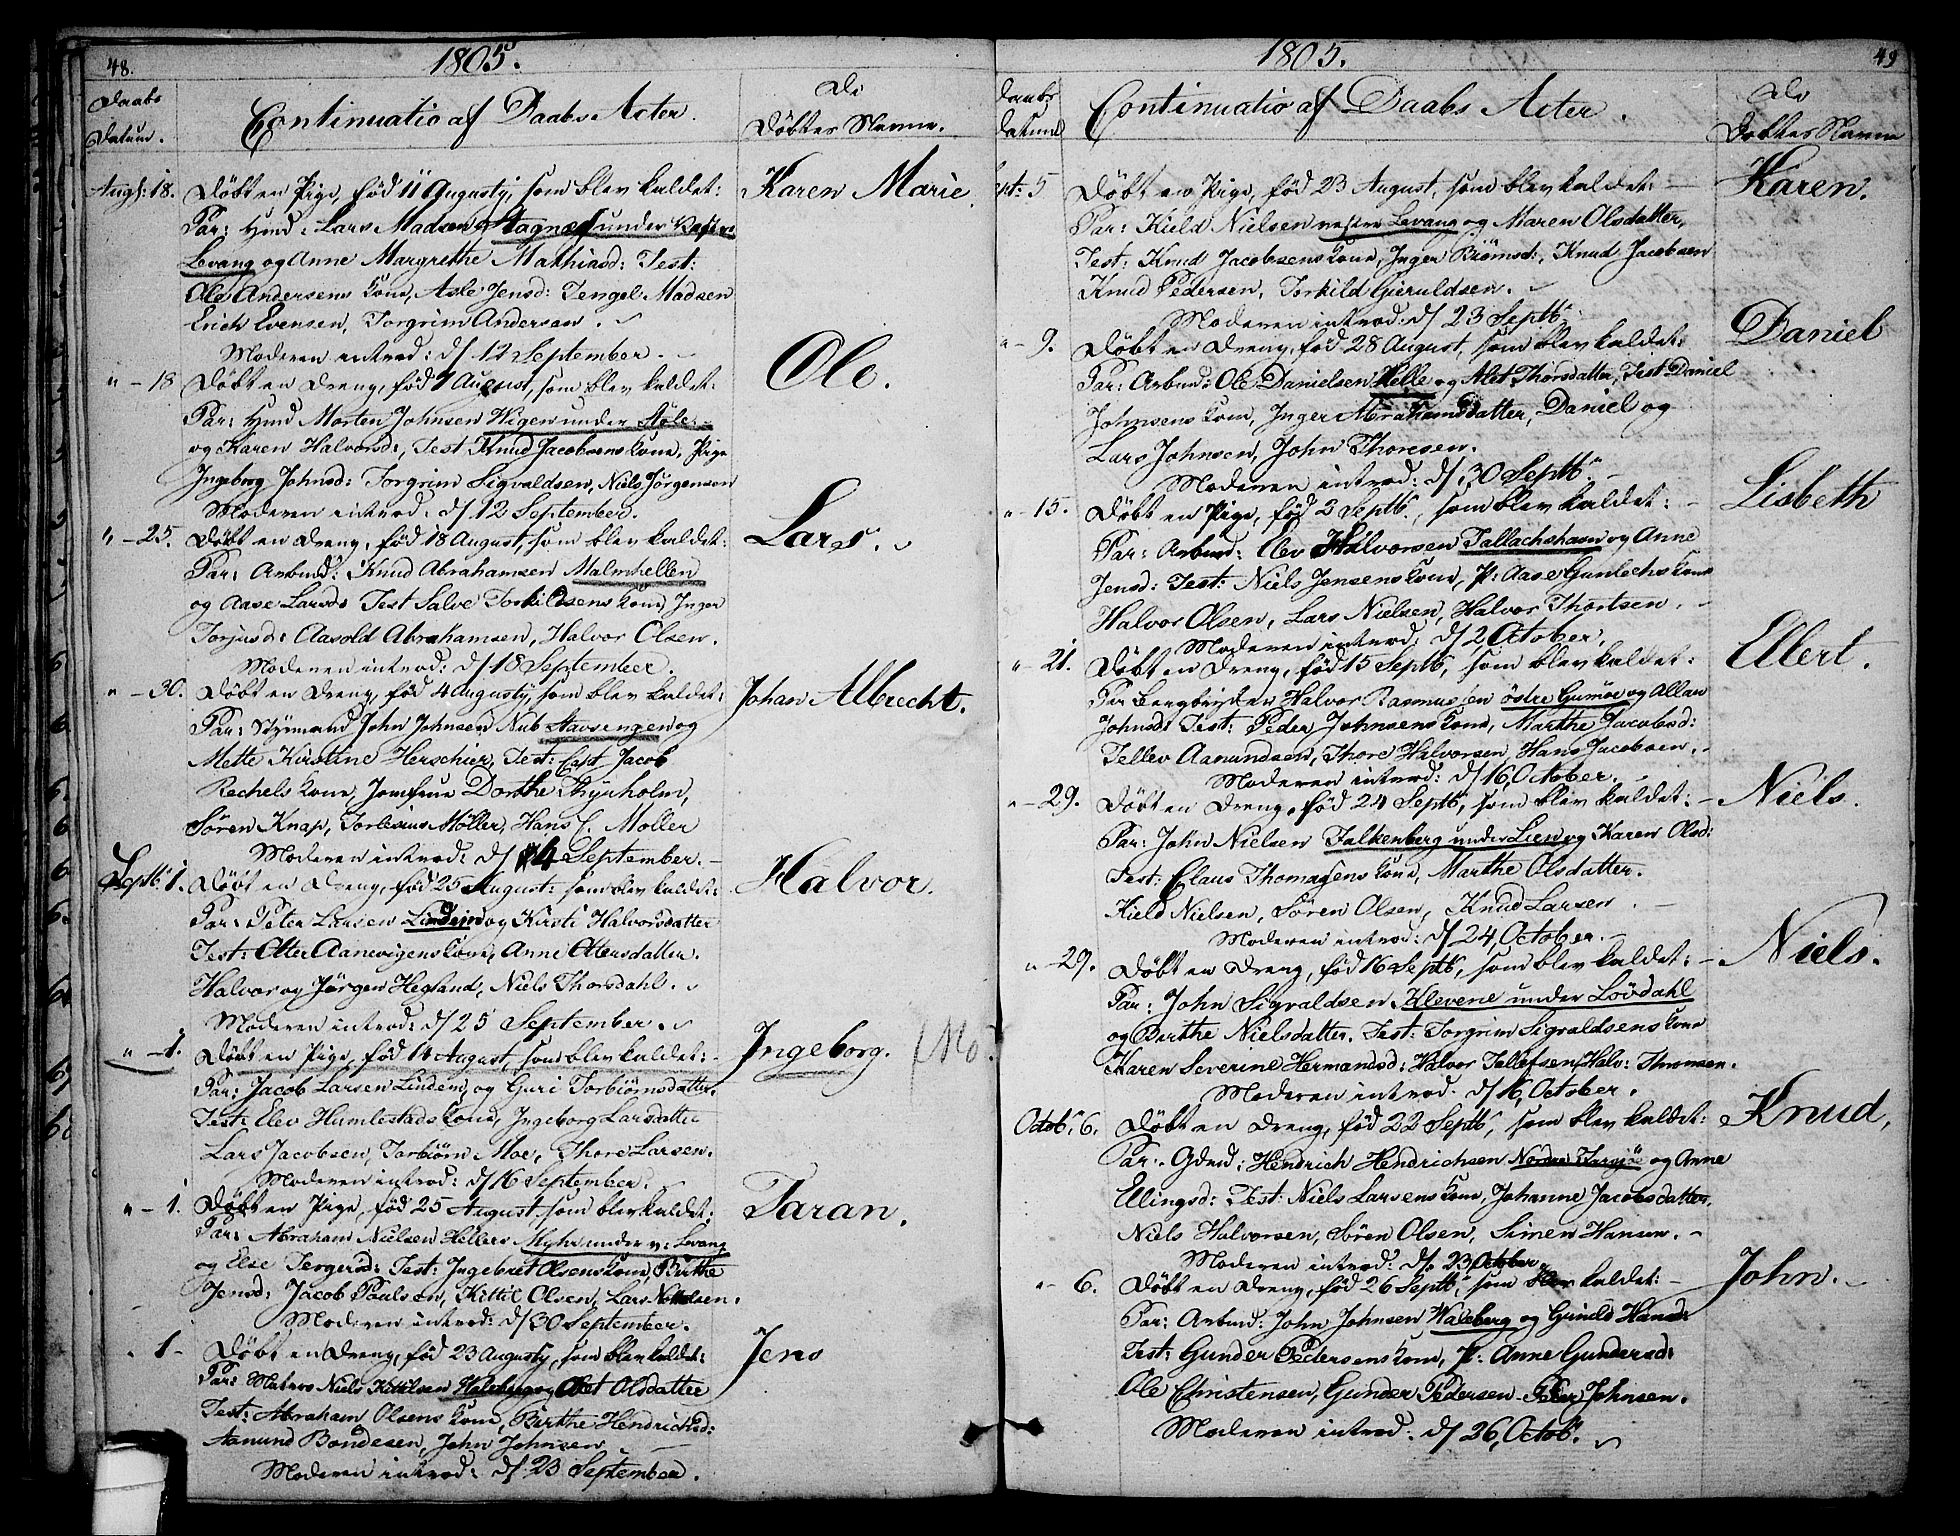 48.
1805.
Daabs
Datum.
Continuatio af Daabs Acter.
De
Döbtes Navne.
Augs: 18. Döbt en Pige, föd 11 Augusty, som blev kaldet: Karen Marie.
Par: Hmd: Lars Madsen Stagnes under Vestre
Levang og Anne Margrethe Mathiasd: Test:
Ole Andersens Kone, Asle Jensd: Tengel Madsen
Erich Evensen, Torgrim Andersen.
Moderen introd: d/ 12 September.
" - 18 Döbt en Dreng, föd 7 August, som blev kaldet: Ole.
Par: Hmd Morten Johnsen Wigen under Støle
og Karen Halvorsd:, Test Knud Jacobsens Kone, Pige
Ingeborg Johnsd: Torgrim Sigvaldsen, Niels Jörgensen
Moderen introd: d/ 12 September.
" - 25. Döbt en Dreng, föd 18 August, som blev kaldet: Lars.
Par: Arbmd: Knud Abrahamsen Malmhellen
og Aase Larsd: Test Salve Torkildsens Kone, Inger
Torjusd: Aasold Abrahamsen, Halvor Olsen.
Moderen introd: d/ 18 September.
" - 30. Döbt en Dreng, föd 4 Augusty, som blev kaldet: Johan Albrecht.
Par: Stÿrmand John Johnsen Nub Stavsengen og
Mette Kirstine Herschier, Test: Capt Jacob
Rechels Kone, Jomfrue Dorthe Thyrholm,
Sören Knap, Møller, Hans C. Moller
Moderen introd: d/ 14 September.
Septb: 1. Döbt en Dreng, föd 25 August: som blev kaldet: Halvor.
Par: Peter Larsen Lindem og Kirsti Halvorsdatter
Test: Otter Aanevigens Kone, Anne Ottersdatter.
Halvor og Jörgen Hegland, Niels Thorsdahl.
Moderen introd: d/ 25 September.
" - 1. Döbt en Pige, föd 14 August, som blev kaldet: Ingeborg.
Par: Jacob Larsen Lindem, og Guri Torbiörnsdatter.
Test: Elev Humlestads Kone, Ingeborg Larsdatter
Lars Jacobsen, Torbiörn Moe, Thore Larsen.
Moderen introd: d/ 16 September.
" - 1. Döbt en Pige, föd 25 August, som blev kaldet: Taran.
Par: Abraham Nielsen Hellers Myhr under v: Levang
og Else Tergersd: Test: Ingebret Olsens Kone, Birthe
Jensd: Jacob Paulsen, Kittil Olsen, Lars
Moderen introd: d/ 30 September.
" 1 - Döbt en Dreng, föd 23 Augusty, som blev kaldet: Jens
Par: Matros Niels Kittilsen og Olsdatter
Test: Abraham Olsens Kone, Birthe Hendrichsd:
Aamund Bondesen, John Johnsen
Moderen introd: d/ 23 September.
1805.
49
Daabs
Datum
Continuatio af Daabs Acter.
De
Döbtes Navne
Spt: 5 Döbt en Pige, föd 23 August, som blev kaldet: Karen.
Par: Kield Nielsen vestre Levang og Maren Olsdatter,
Test: Knud Jacobsens Kone, Inger Biörnsd:, Knud Jacobsen
Knud Pedersen, Torkild Gieruldsen.
Moderen introd: d/ 23 Septb:
" - 9. Döbt en Dreng, föd 28 August, som blev kaldet: Daniel
Par: Arbmd: Ole Danielsen Helle og Alet Thorsdatter, Test: Daniel
Johnsens Kone, Inger Abrahamsdatter, Daniel og
Lars Johnsen, John Thoresen.
Moderen introd: d/ 30 Septb:
" - 15. Döbt en Pige, föd 2 Septb:, som blev kaldet: Lisbeth
Par: Arbmd: Elev Halvorsen Tallachshavn og Anne
Jensd: Test: Niels Jensens Kone, P: Aase Gunlechs
Halvor Olsen, Lars Nielsen, Halvor Thortsen.
Moderen introd: d/ 2 October.
" - 21. Döbt en Dreng, föd 15 Septb, som blev kaldet: Ellert.
Par Bergbryder Halvor Rasmussen östre Gumöe og Allau
Johnsd: Test: Peder Johnsens Kone, Marthe Jacobsd:
Tellev Aamundsen, Thore Halvorsen, Hans Jacobsen.
Moderen introd: d/ 16, October.
" - 29. Döbt en Dreng, föd 24 Septb, som blev kaldet: Niels.
Par: John Nielsen Falkenberg under Lien og Karen Olsd:
Test: Claus Thomasens Kone, Marthe Olsdatter.
Kield Nielsen, Sören Olsen, Knud Larsen.
Moderen introd: d/ 24, October.
" - 29. Döbt en Dreng, föd 16 Septb, som blev kaldet: Niels.
Par: John Sigvaldsen Klevene under Lövdahl
og Birthe Nielsdatter. Test: Torgrim Sigvaldsens Kone
Karen Severine Hermansd: Halvor Tellefsen, Halv: Thomsen.
Moderen introd. d/ 16, October.
Octob: 6. Döbt en Dreng, föd 22 Septb, som blev kaldet: Knud,
Par: Gdmd: Hendrich Hendrichsen Nordre og Anne
Ellingsd: Test: Niels Larsens Kone, Johanne Jacobsdatter.
Niels Halvorsen, Sören Olsen, Simen Hansen.
Moderen introd: d/ 23 October.
" - 6. Döbt en Dreng, föd 26 Septb, som blev kaldet: John.
Par: Arbmd: John Johnsen Waleberg og Gunild Hansd:
Test: Gunder Pedersens Kone, P: Anne Gundersd:
Ole Christensen, Gunder Pedersen Johnsen.
Moderen introd: d/ 26, Octob: